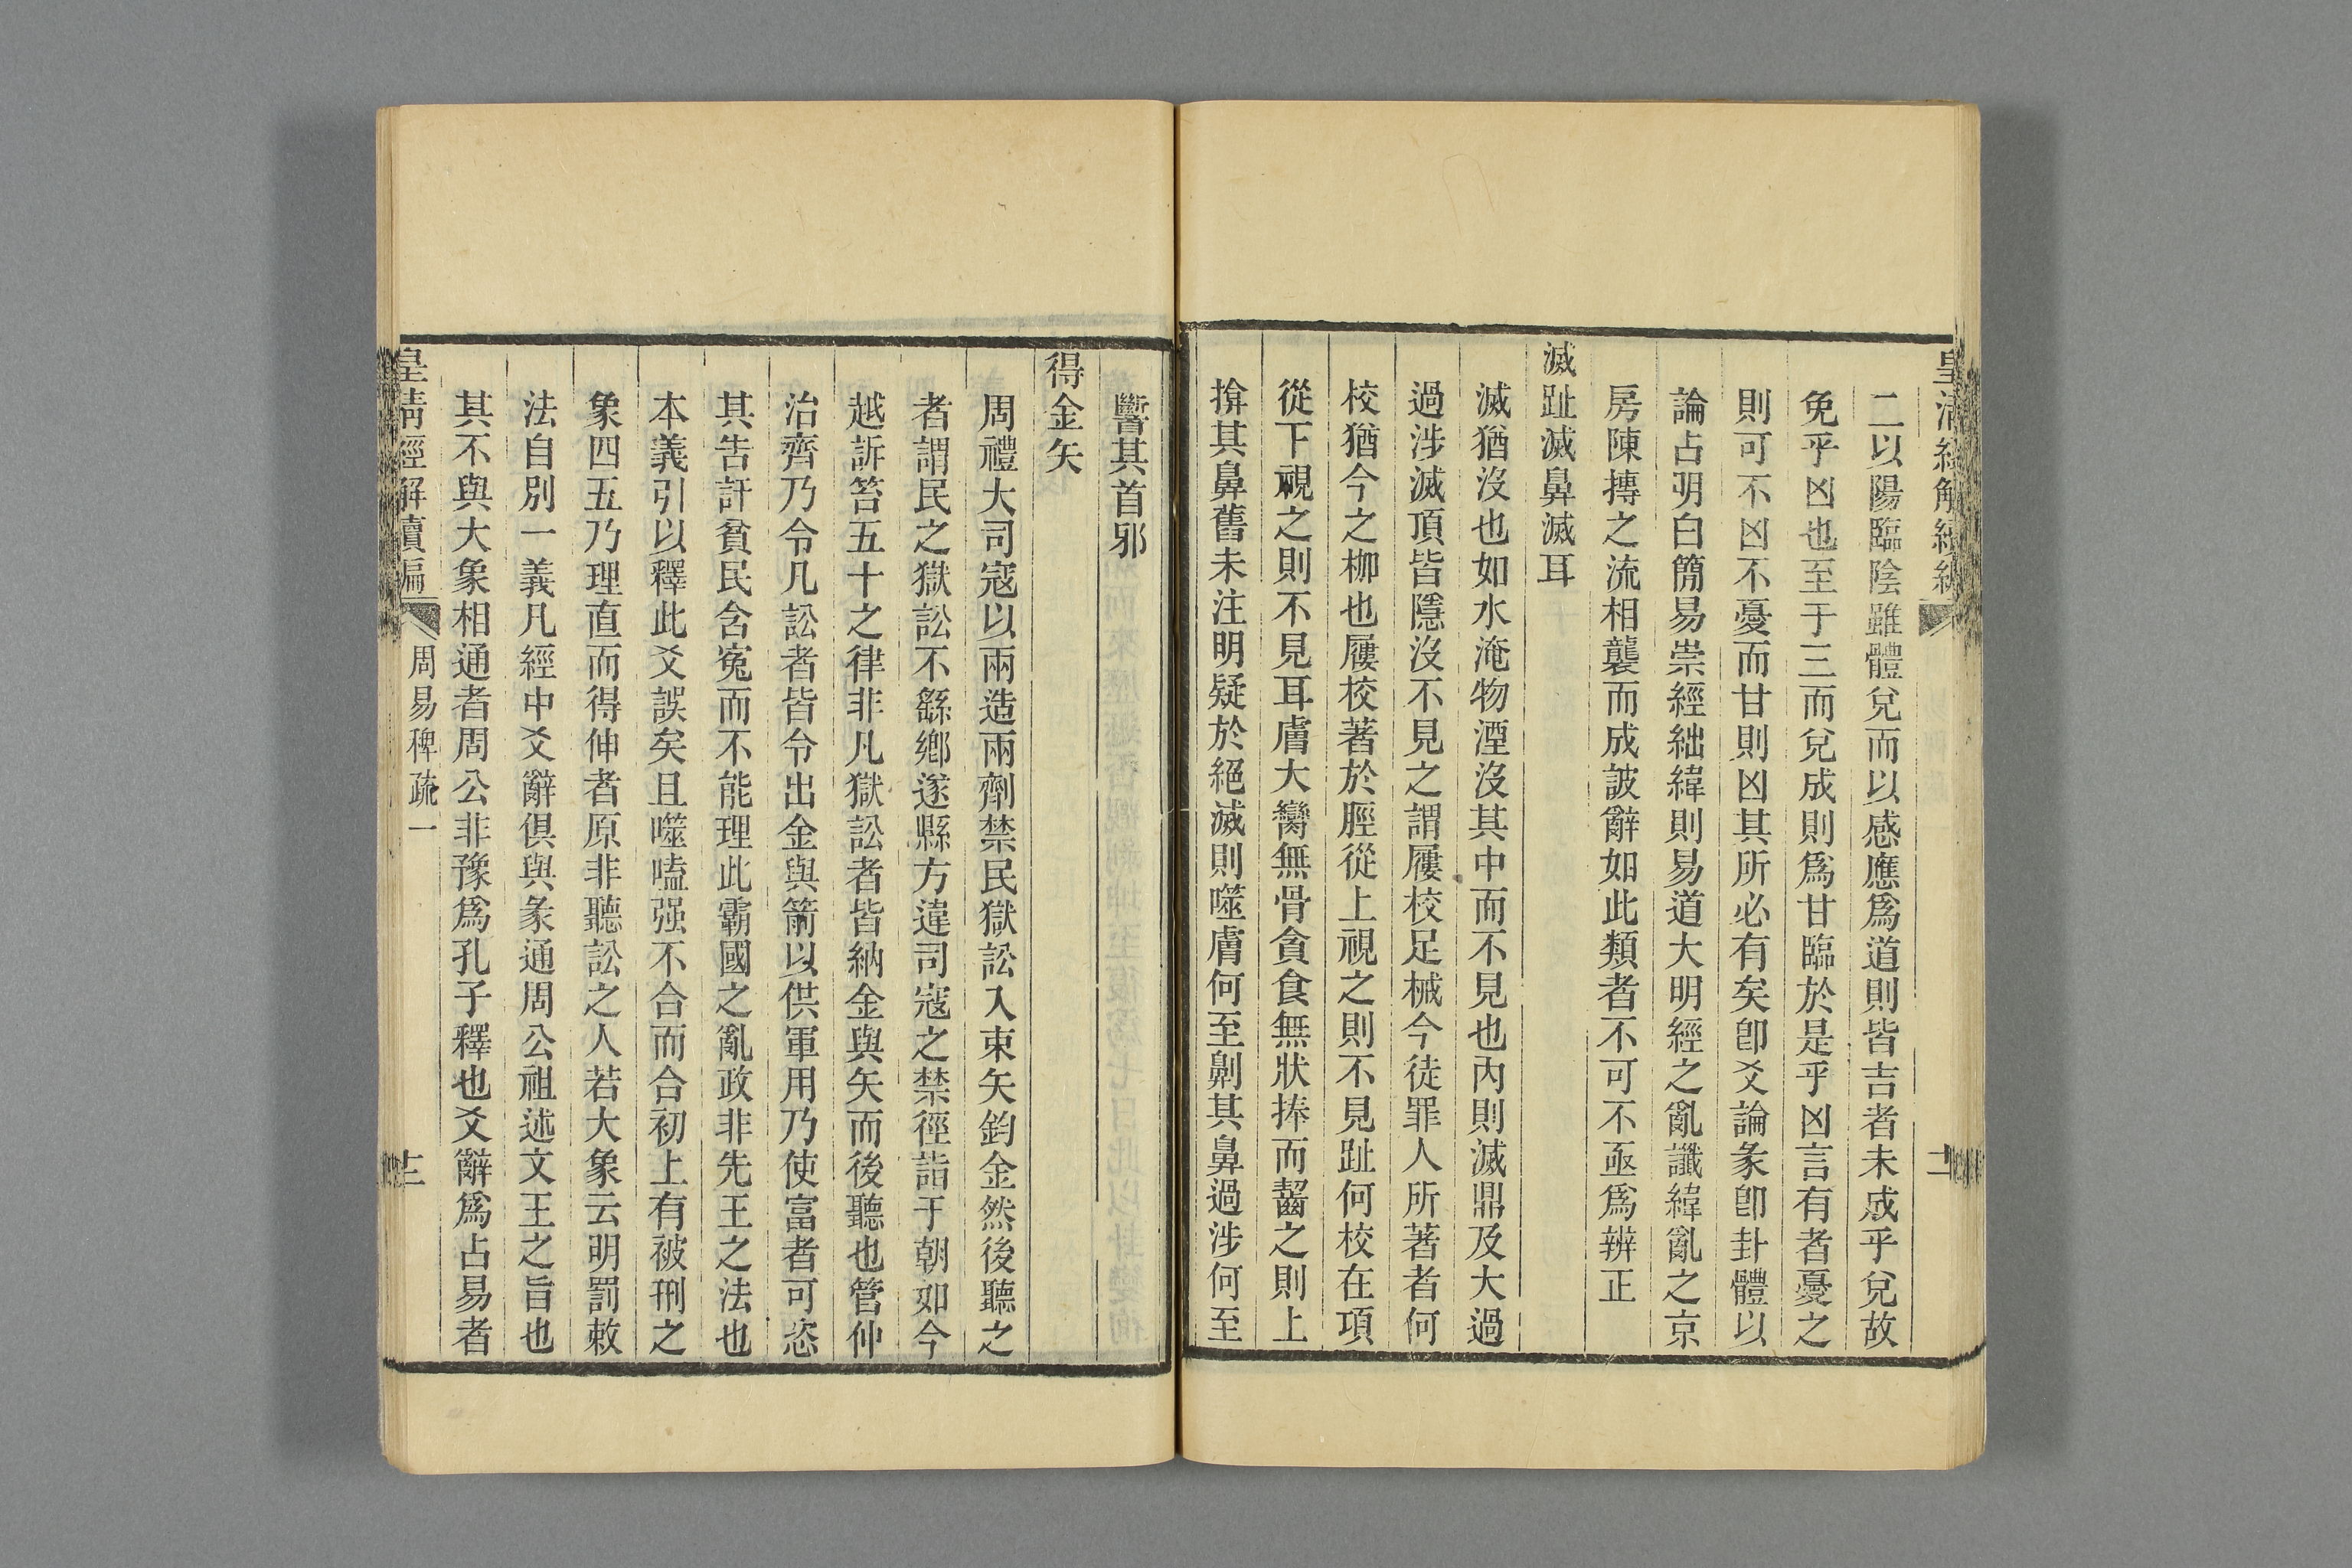 皇清經解續編
二以陽臨陰雖體兌而以感應爲道則皆吉者未成乎兌故
免乎凶也至于三而兌成則爲甘臨於是乎凶言有者憂之
則可不凶不憂而甘則凶其所必有矣卽爻論彖卽卦體以
論占明白簡易崇經絀緯則易道大明經之亂讖緯亂之京
房陳摶之流相襲而成詖辭如此類者不可不亟爲辨正
滅趾滅鼻滅耳
滅猶沒也如水淹物湮沒其中而不見也內則滅鼎及大過
過涉滅頂皆隱沒不見之謂屨校足械今徒罪人所著者何
校猶今之枷也屨校著於脛從上視之則不見趾何校在項
從下視之則不見耳膚大臠無骨貪食無狀捧而齧之則上
揜其鼻舊未注明疑於絕滅則噬膚何至劓其鼻過涉何至
䃸其首邪
得金矢
周禮大司寇以兩造兩劑禁民獄訟入束矢鈞金然後聽之
者謂民之獄訟不繇鄉遂縣方違司寇之禁徑詣于朝如今
越訴笞五十之律非凡獄訟者皆納金與矢而後聽也管仲
治齊乃令凡訟者皆令出金與箭以供軍用乃使富者可恣
其告訐貧民含寃而不能理此霸國之亂政非先王之法也
本義引以釋此爻誤矣且噬嗑强不合而合初上有被刑之
象四五乃理直而得伸者原非聽訟之人若大象云明罰敕
法自別一義凡經中爻辭俱與彖通周公祖述文王之旨也
其不與大象相通者周公非豫爲孔子釋也爻辭爲占易者
皇清經解續編
周易稗疏一